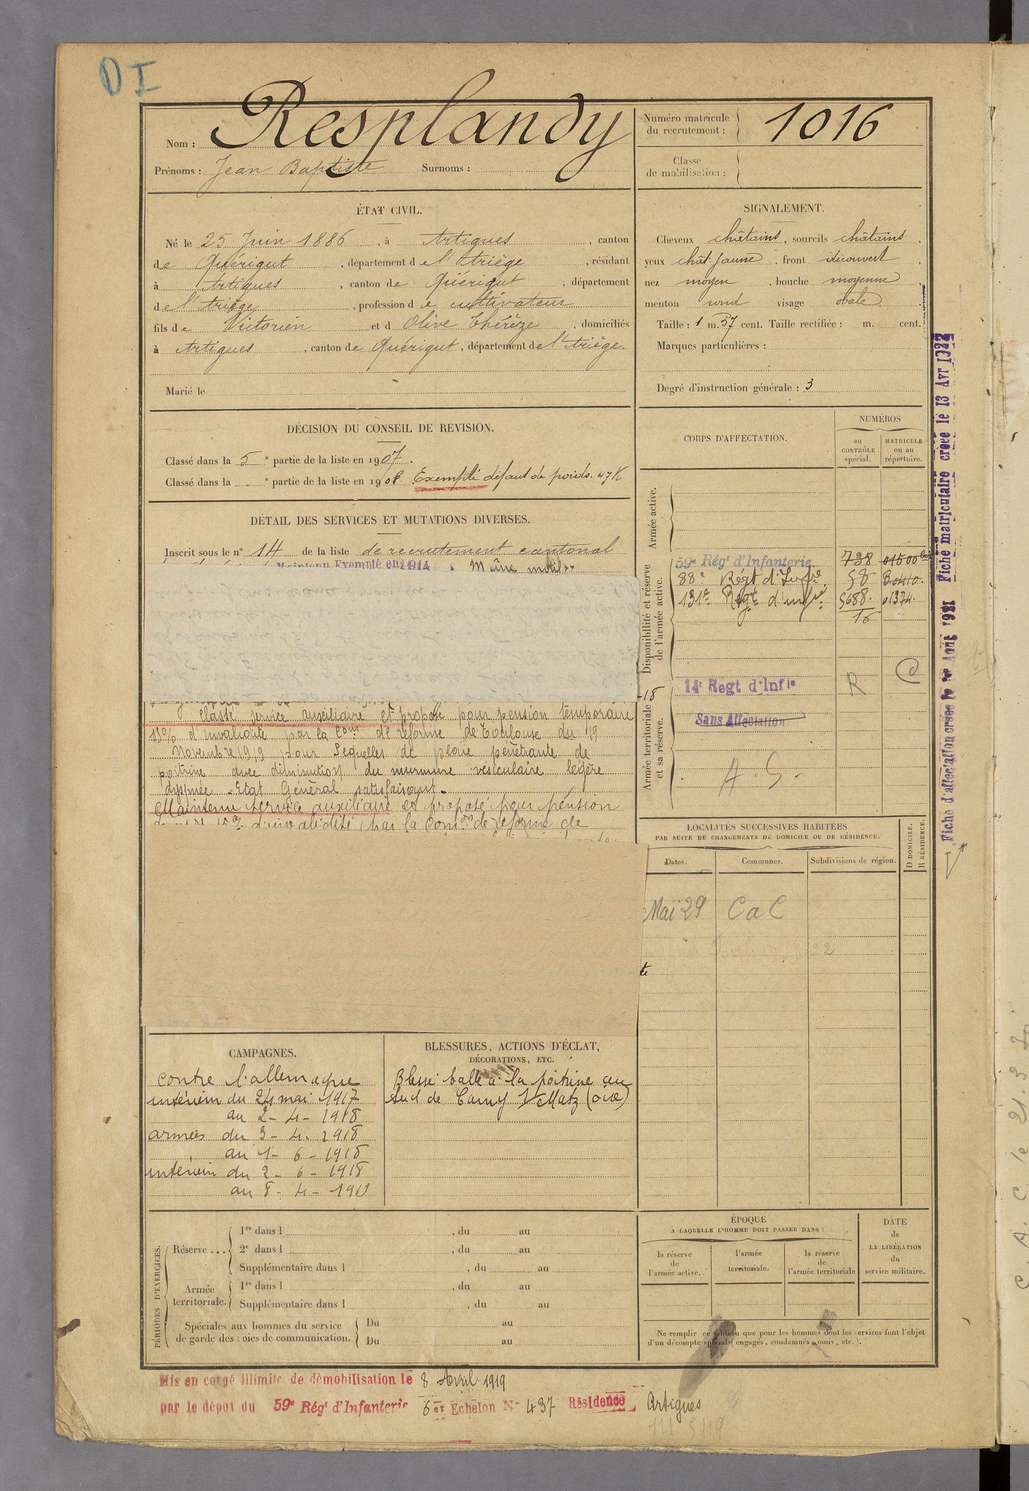 DI
Nom : Resplandy
Prénoms : Jean Baptiste Surnoms :
Numéro matricule du recrutement : 1016
Classe de mobilisation :
ÉTAT CIVIL.
Né le 25 Juin 1886, à Artigues, canton
de Quérigut, département de l'Ariège, résidant
à Artigues, canton de Quérigut, département
de l'Ariège, profession de cultivateur
fils de Victorien et d Olive Thérèze, domiciliés
à Artigues, canton de Quérigut, département de l'Ariège.
Marié le
SIGNALEMENT.
Cheveux châtains, sourcils châtains,
yeux chât jaune, front découvert,
nez moyen, bouche moyenne
menton rond visage ovale
Taille : 1 m. 57 cent. Taille rectifiée : m. cent.
Marques particulières :
Degré d'instruction générale : 3
DÉCISION DU CONSEIL DE REVISION.
Classé dans la 5e partie de la liste en 1907.
Classé dans la e partie de la liste en 1908 Exempté défaut de poids. 47 K
DÉTAIL DES SERVICES ET MUTATIONS DIVERSES.
Inscrit sous le n° 14 de la liste de recrutement cantonal
Maintenu Exempté en 1914
classé service auxiliaire et proposé pour pension temporaire
15% d'invalidité par la Comon de réforme de Toulouse du 19
Novembre 1919 pour Sequelles de plaie pénétrante de
poitrine avec diminution du murmure vésiculaire légère
dypnée Etat Général satisfaisant.
Maintenu service auxiliaire et proposé pour pension
d'invalidité par la Comon de réforme de
CORPS D'AFFECTATION.
NUMÉROS
au CONTRÔLE spécial.
MATRICULE ou au répertoire.
Armée active.
Disponibilité et réserve de l'armée active.
59e Régt d'Infanterie 738 01500 bis
88e Régt d'Infie 58
131e Régt d'infie 5688 01374
16
14e Regt d'Infie R
Sans Affectation
Armée territoriale et sa réserve.
A.S.
Fiche d'affectation créée le Août 1921 Fiche matriculaire créée le 13 Avr 1922
LOCALITÉS SUCCESSIVES HABITÉES
PAR SUITE DE CHANGEMENTS DE DOMICILE OU DE RÉSIDENCE.
Dates. Communes. Subdivisions de région. D DOMICILE. R RÉSIDENCE.
Mai 29 CaC
CAMPAGNES.
contre l'allemagne
intérieur du 24 mai 1917
au 2-4-1918
armées du 3-4-1918
au 1-6-1918
intérieur du 2-6-1918
au 8-4-1919
BLESSURES, ACTIONS D'ÉCLAT,
DÉCORATIONS, ETC.
Blessé balle à la poitrine au
sud de Canny s/ Matz (oise)
PÉRIODES D'EXERCICES.
Réserve...
1re dans l , du au
2e dans l , du au
Supplémentaire dans l , du au
Armée territoriale.
1re dans l , du au
Supplémentaire dans l , du au
Spéciales aux hommes du service de garde des voies de communication.
Du au
Du au
EPOQUE
À LAQUELLE L'HOMME DOIT PASSER DANS :
la réserve de l'armée active.
l'armée territoriale.
la réserve de l'armée territoriale
DATE de LA LIBÉRATION du service militaire.
Ne remplir ce tableau que pour les hommes dont les services font l'objet
d'un décompte spécial (engagés, condamnés, omis, etc.).
Mis en congé illimité de démobilisation le 8 Avril 1919
par le dépôt du 59e Régt d'Infanterie 6er Echelon N° 437 Résidence Artigues